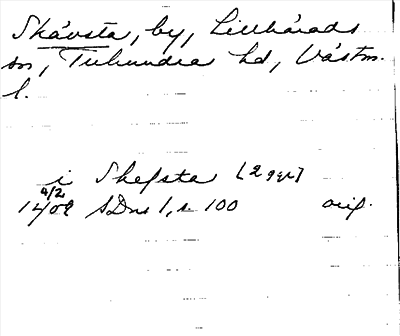 Skävsta, by, Lillhärads
sn, Tuhundra hd, Västm.
l.
i Skefsta [2 ggr]
4/2
1409 SDns 1, s 100 orig.